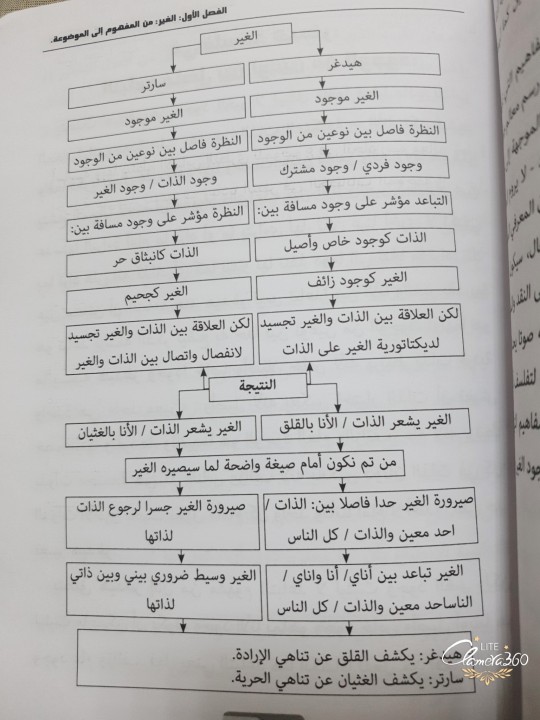 الفصل الأول: الغير: من المفهوم إلى الموضوعة.
الغير
هيدغر
سارتر
الغير موجود
الغير موجود
النظرة فاصل بين نوعين من الوجود
النظرة فاصل بين نوعين من الوجود
وجود فردي / وجود مشترك
وجود الذات / وجود الغير
التباعد مؤشر على وجود مسافة بين:
النظرة مؤشر على وجود مسافة بين:
الذات كوجود خاص وأصيل
الذات كانبثاق حر
الغير كوجود زائف
الغير كجحيم
لكن العلاقة بين الذات والغير تجسيد
لديكتاتورية الغير على الذات
لكن العلاقة بين الذات والغير تجسيد
لانفصال واتصال بين الذات والغير
النتيجة
الغير يشعر الذات / الأنا بالقلق
الغير يشعر الذات / الأنا بالغثيان
من تم نكون أمام صيغة واضحة لما سيصيره الغير
صيرورة الغير حدا فاصلا بين: الذات /
احد معين والذات / كل الناس
صيرورة الغير جسرا لرجوع الذات
لذاتها
الغير تباعد بين أناي/ أنا واناي /
الناساحد معين والذات / كل الناس
الغير وسيط ضروري بيني وبين ذاتي
لذاتها
هيدغر: يكشف القلق عن تناهي الإرادة.
سارتر: يكشف الغثيان عن تناهي الحرية.
LITE
Camera360